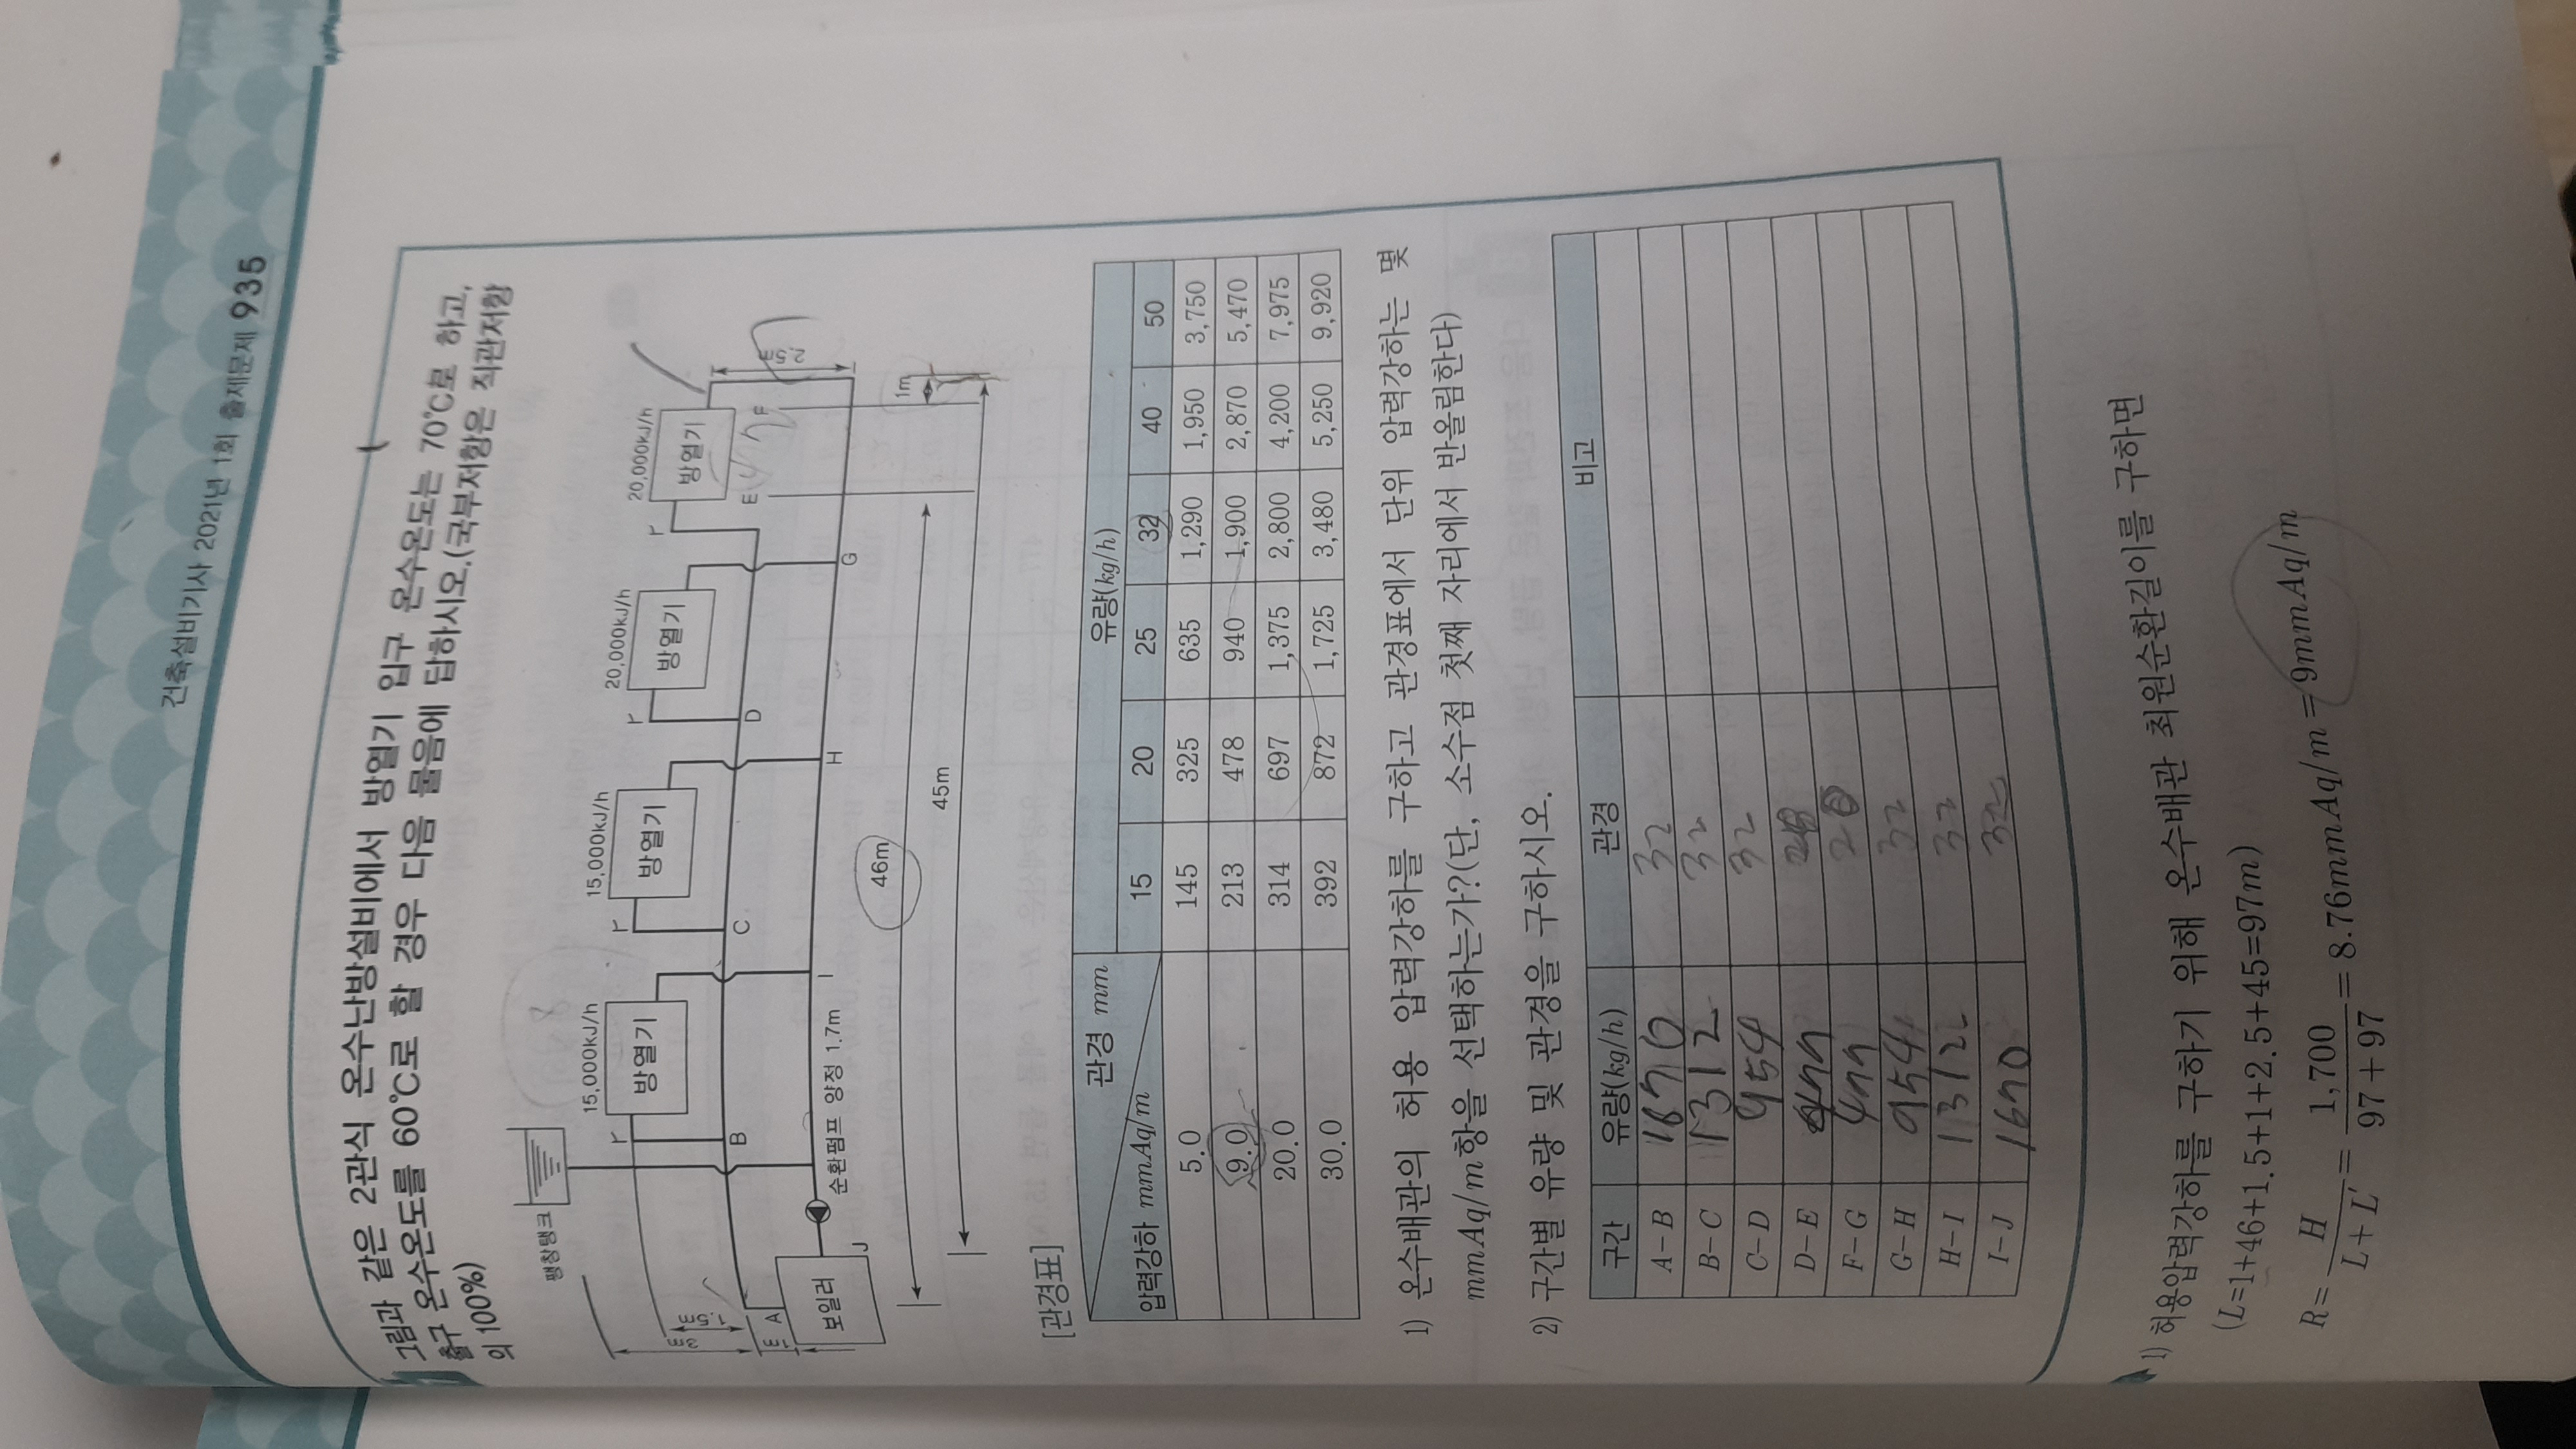 건축설비기사 2021년 1회 출제문제 935
그림과 같은 2관식 온수난방설비에서 방열기 입구 온수온도는 70℃로 하고,
출구 온수온도를 60℃로 할 경우 다음 물음에 답하시오.(국부저항은 직관저항
의 100%)
팽창탱크
15,000kJ/h 15,000kJ/h 20,000kJ/h 20,000kJ/h
방열기 방열기 방열기 방열기
r r r r
2m 1.5m 1m 2.5m
A B C D E F
보일러
J I H G
순환펌프 양정 1.7m
1m
46m
45m
[관경표]
관경 mm 유량(kg/h)
압력강하 mmAq/m 15 20 25 32 40 50
5.0 145 325 635 1,290 1,950 3,750
9.0 213 478 940 1,900 2,870 5,470
20.0 314 697 1,375 2,800 4,200 7,975
30.0 392 872 1,725 3,480 5,250 9,920
1) 온수배관의 허용 압력강하를 구하고 관경표에서 단위 압력강하는 몇
mmAq/m항을 선택하는가?(단, 소수점 첫째 자리에서 반올림한다)
2) 구간별 유량 및 관경을 구하시오.
구간 유량(kg/h) 관경 비고
A-B 1670 32
B-C 1312 32
C-D 954 32
D-E 477
F-G 477 20
G-H 954 32
H-I 1312 32
I-J 1670 32
1) 허용압력강하를 구하기 위해 온수배관 최원순환길이를 구하면
(L=1+46+1.5+1+2.5+45=97m)
R= H / L+L′ = 1,700 / 97+97 = 8.76mmAq/m = 9mmAq/m